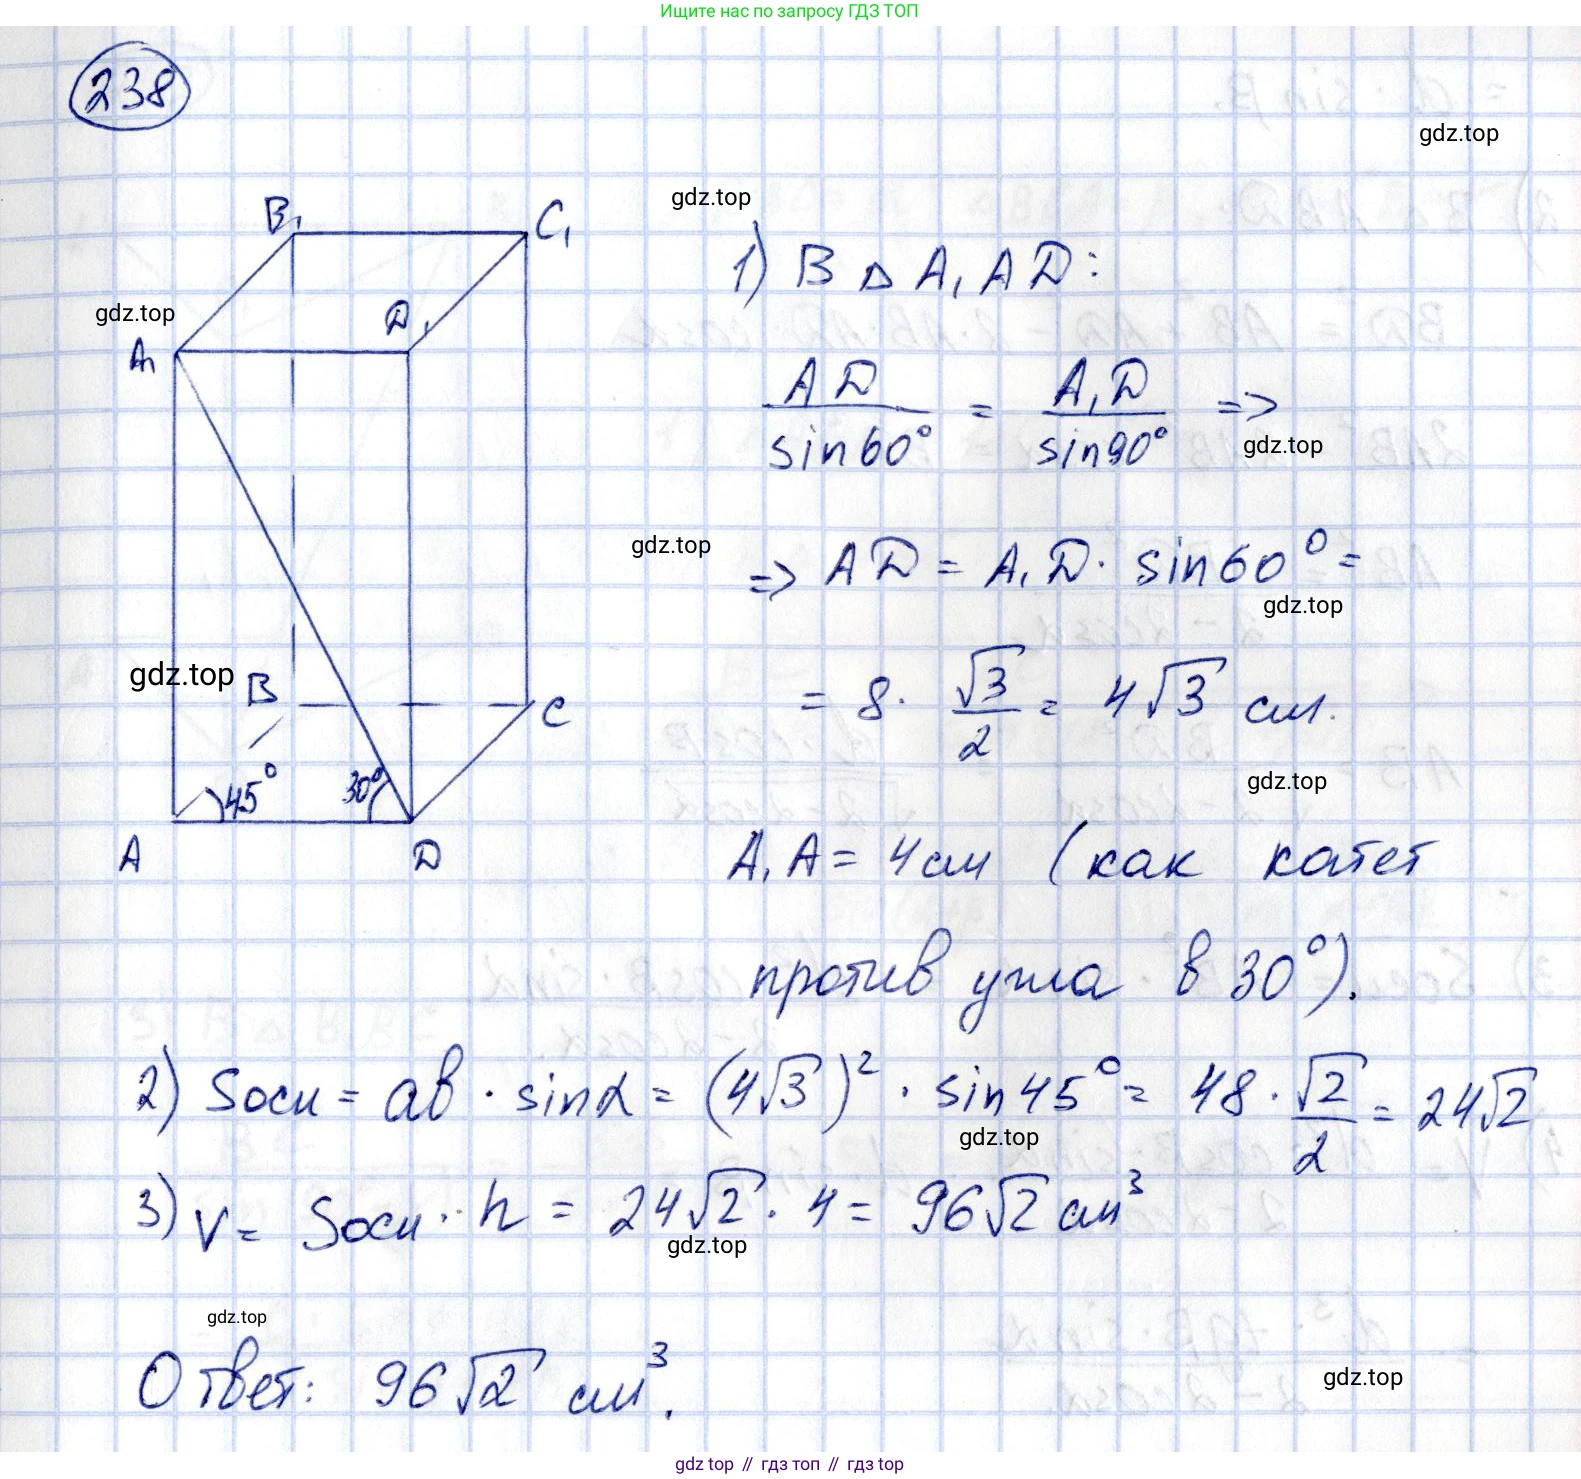 Ищите нас по запросу ГДЗ ТОП
238
gdz.top
gdz.top
B₁
C₁
gdz.top
D₁
A₁
1) В △ A₁AD:
AD/sin60° = A₁D/sin90° =>
gdz.top
gdz.top
=> AD = A₁D · sin60° =
gdz.top
gdz.top
B
C
= 8 · √3/2 = 4√3 см.
gdz.top
45°
30°
A
D
A₁A = 4см (как катет
против угла в 30°).
2) Sосн = ab · sinα = (4√3)² · sin45° = 48 · √2/2 = 24√2
gdz.top
3) V = Sосн · h = 24√2 · 4 = 96√2 см³
gdz.top
gdz.top
Ответ: 96√2 см³.
gdz.top
gdz.top // гдз топ // гдз top